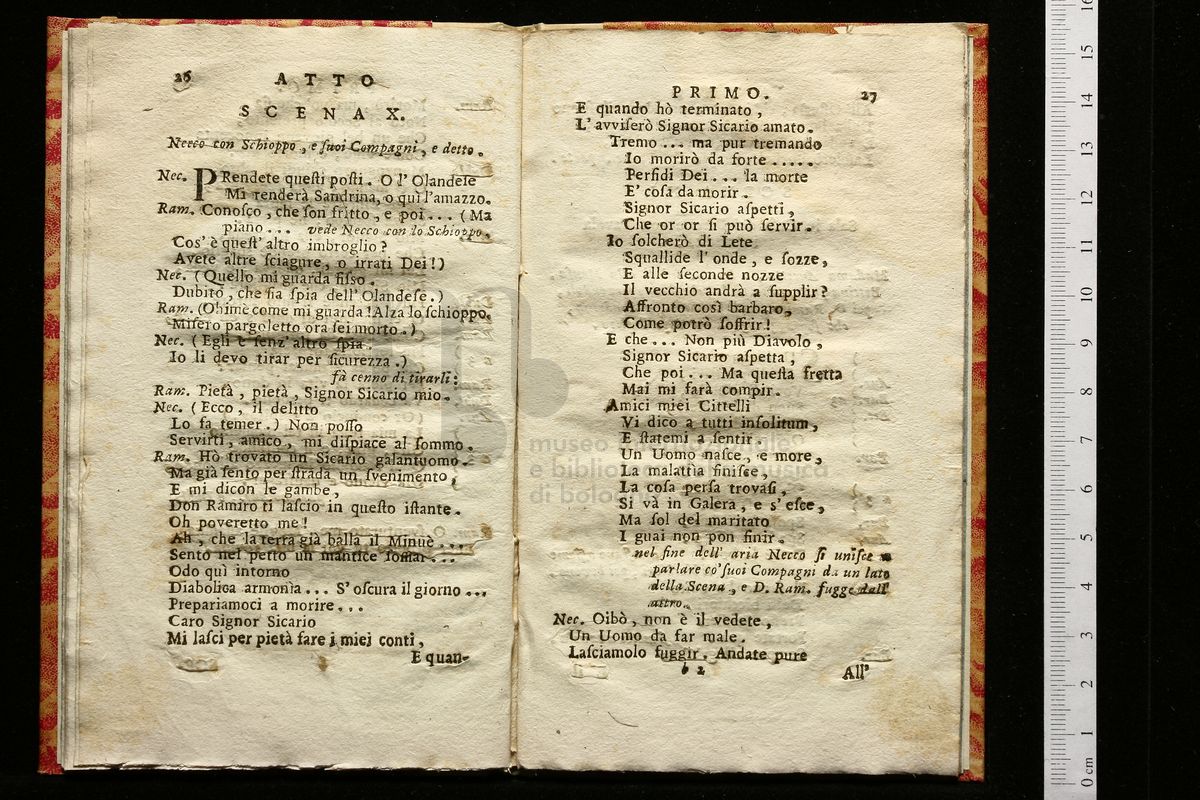 26 ATTO
SCENA X.
Necco con Schioppo, e suoi Compagni, e detto.
Nec. PRendete questi posti. O l' Olandese
Mi renderà Sandrina, o quì l'amazzo.
Ram. Conosco, che son fritto, e poi... (Ma
piano... vede Necco con lo Schioppo.
Cos' è quest' altro imbroglio?
Avete altre sciagure, o irrati Dei!)
Nec. (Quello mi guarda fisso.
Dubito, che sia spia dell' Olandese.)
Ram. (Ohimè come mi guarda! Alza lo schioppo.
Misero pargoletto ora sei morto.)
Nec. (Egli è senz' altro spia.
Io li devo tirar per sicurezza.)
fà cenno di tirarli:
Ram. Pietà, pietà, Signor Sicario mio.
Nec. (Ecco, il delitto
Lo fa temer.) Non posso
Servirti, amico, mi dispiace al sommo.
Ram. Hò trovato un Sicario galantuomo.
Ma già sento per strada un svenimento,
E mi dicon le gambe,
Don Ramiro ti lascio in questo istante.
Oh poveretto me!
Ah, che la terra già balla il Minuè....
Sento nel petto un mantice soffiar...
Odo quì intorno
Diabolica armonìa... S' oscura il giorno...
Prepariamoci a morire...
Caro Signor Sicario
Mi lasci per pietà fare i miei conti,
E quan-
PRIMO. 27
E quando hò terminato,
L' avviserò Signor Sicario amato.
Tremo... ma pur tremando
Io morirò da forte.....
Perfidi Dei... la morte
E' cosa da morir.
Signor Sicario aspetti,
Che or or si può servir.
Io solcherò di Lete
Squallide l' onde, e sozze,
E alle seconde nozze
Il vecchio andrà a supplir?
Affronto così barbaro,
Come potrò soffrir!
E che... Non più Diavolo,
Signor Sicario aspetta,
Che poi... Ma questa fretta
Mai mi farà compir.
Amici miei Cittelli
Vi dico a tutti insolitum,
E statemi a sentir.
Un Uomo nasce, e more,
La malattìa finisce,
La cosa persa trovasi,
Si và in Galera, e s' esce,
Ma sol del maritato
I guai non pon finir.
nel fine dell' aria Necco si unisce a
parlare co' suoi Compagni da un lato
della Scena, e D. Ram. fugge dall'
altro.
Nec. Oibò, non è il vedete,
Un Uomo da far male.
Lasciamolo fuggir. Andate pure
b 2 All'
museo internazionale
e biblioteca della musica
di bologna
16
15
14
13
12
11
10
9
8
7
6
5
4
3
2
1
0 cm